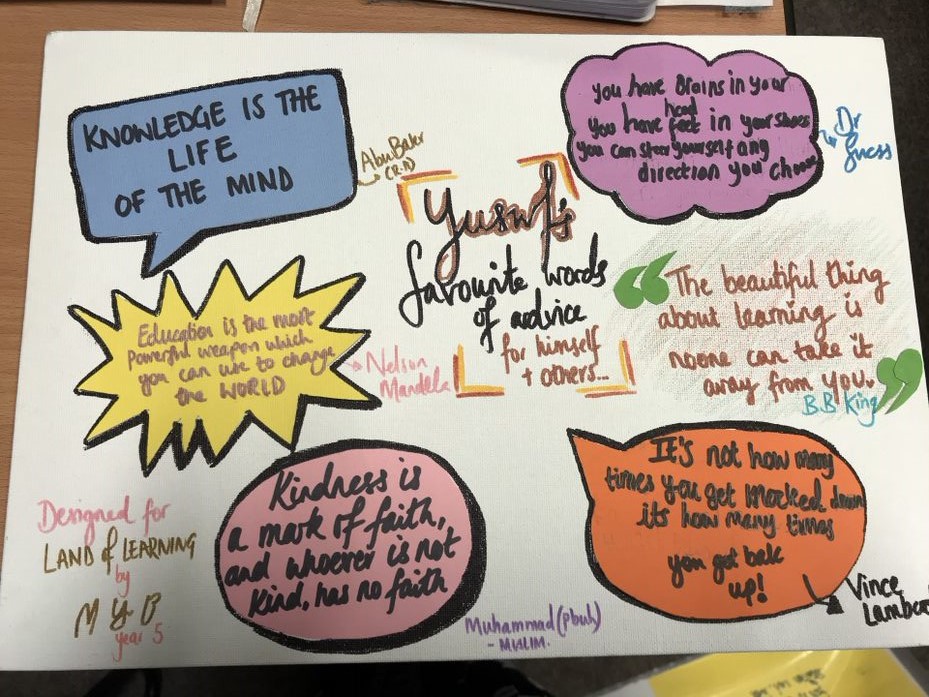 KNOWLEDGE IS THE
LIFE
OF THE MIND
Abu Baker
(R.A)
You have Brains in your
head
You have feet in your shoes
you can steer yourself any
direction you choose
Dr
Suess
Yusuf's
favourite words
of advice
for himself
+ others...
Education is the most
Powerful weapon which
you can use to change
the WORLD
Nelson
Mandela
The beautiful thing
about learning is
noone can take it
away from you.
B.B King
Kindness is
a mark of faith,
and whoever is not
kind, has no faith
Muhammad (pbuh)
- MUSLIM.
It's not how many
times you get knocked down
its how many times
you get back
up!
Vince
Lambe
Designed for
LAND of LEARNING
by
M Y B
year 5